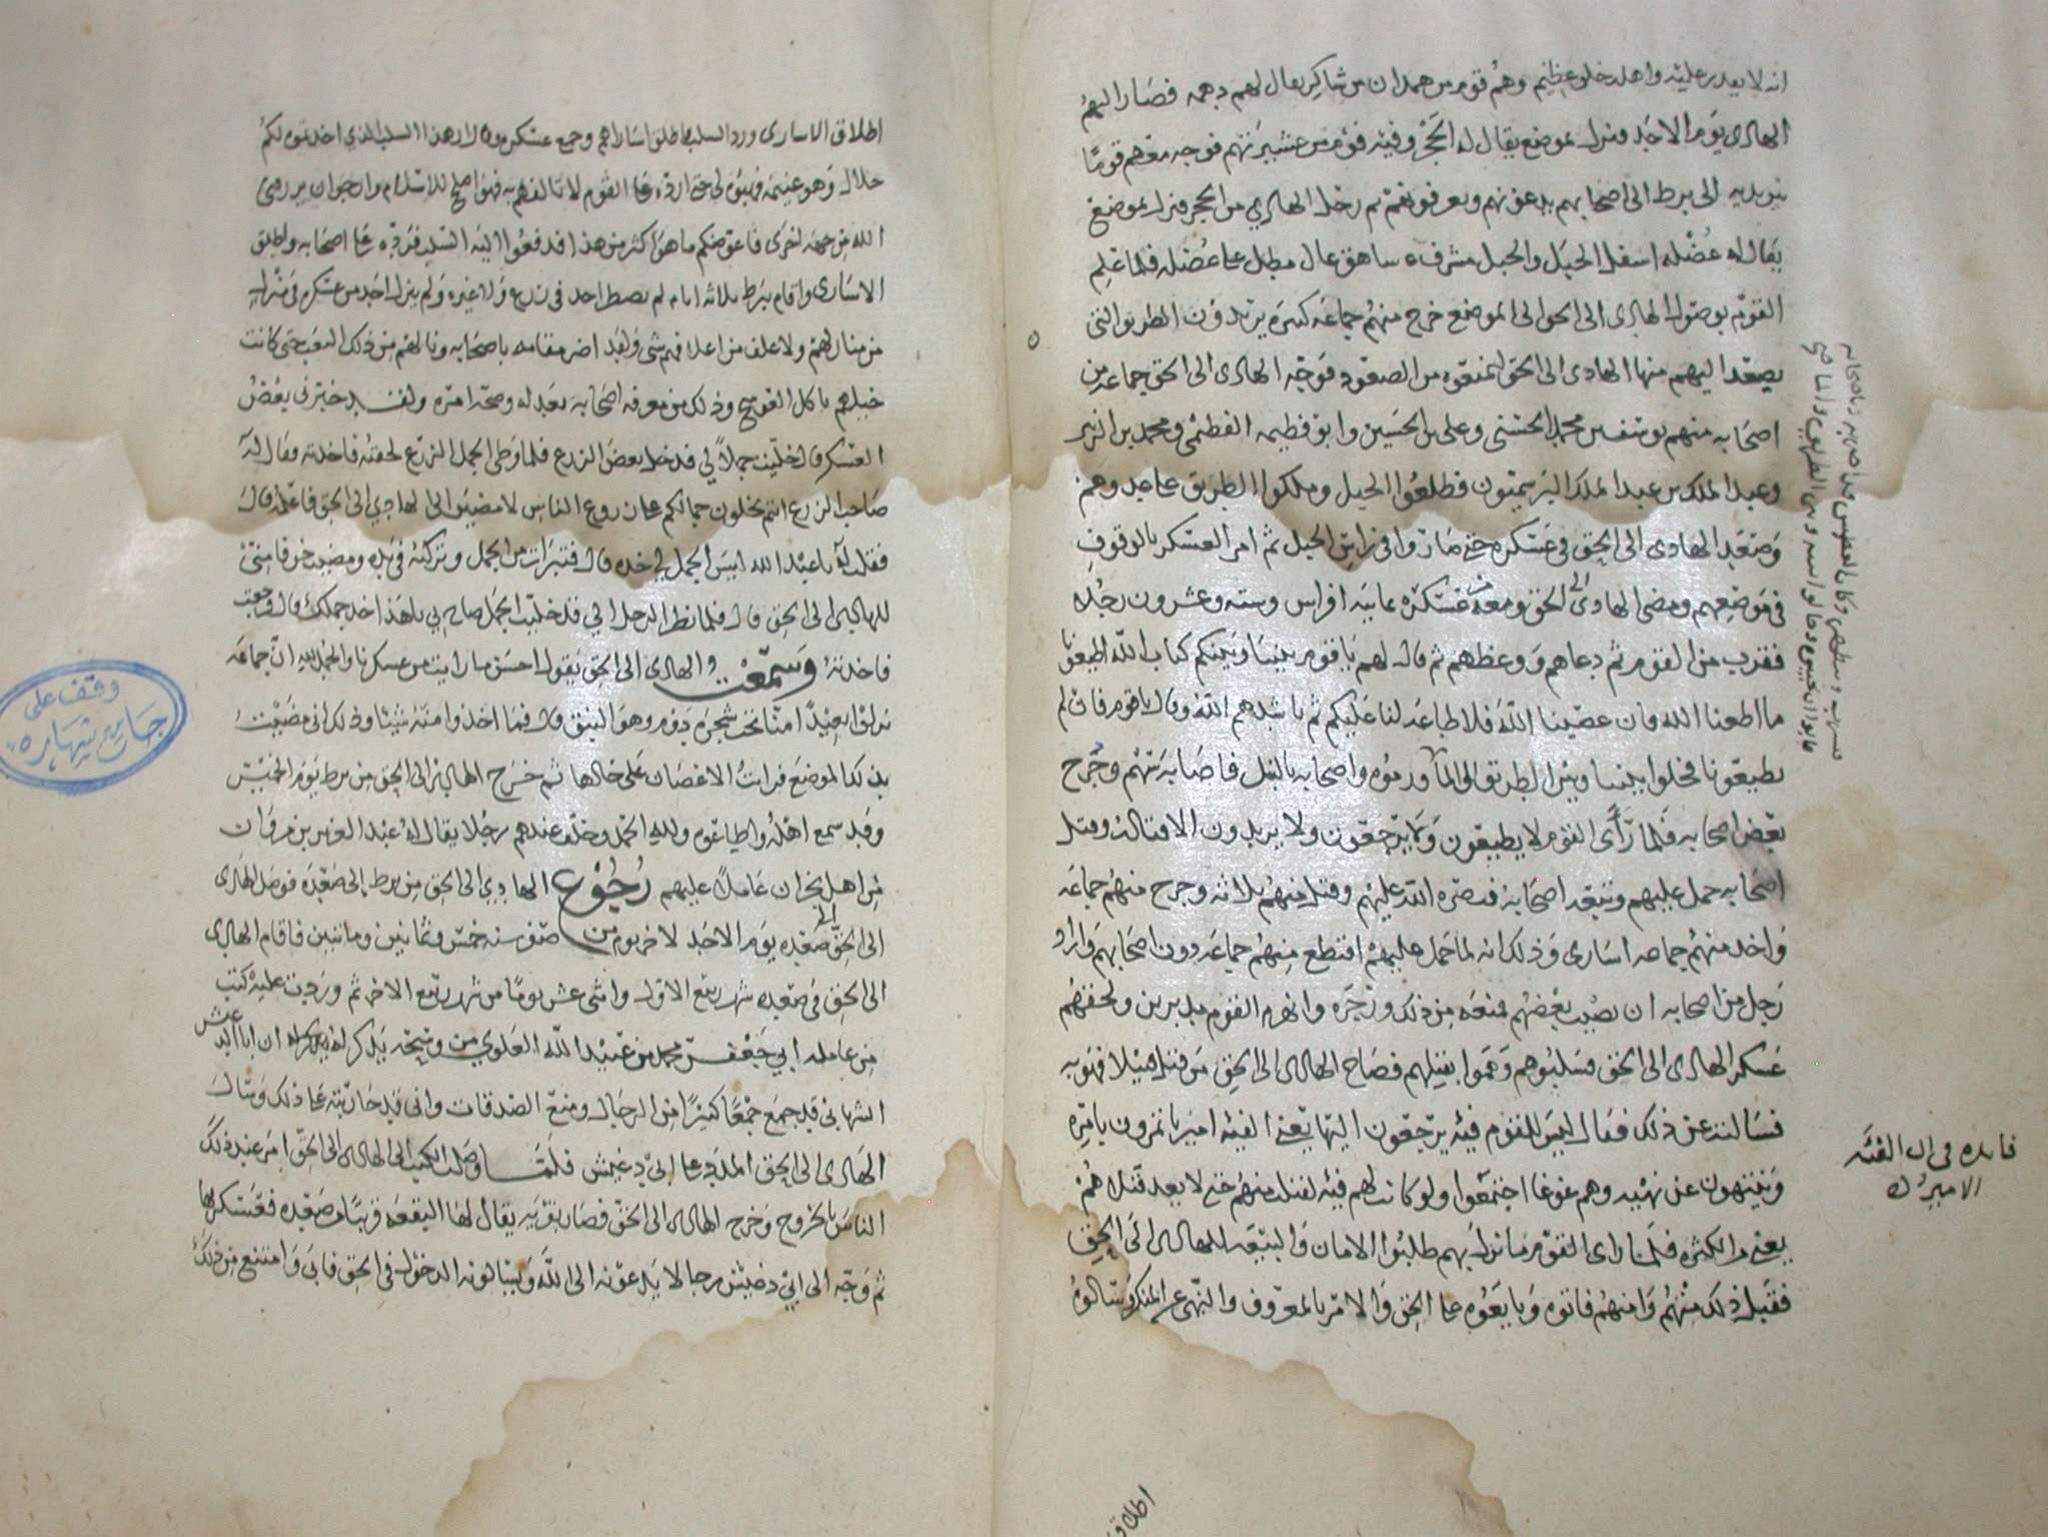 انه لا يقدر عليه واهله خلق عظيم وهم قوم من همدان من شاكر يقال لهم دهمه فصار اليهم
الهادي يوم الاحد ونزل بموضع يقال له الحجر وفيه قوم من عشيرتهم فوجه معهم قومًا
الى برط الى اصحابهم يدعونهم ويعرفونهم ثم رحل الهادي من الحجر فنزل بموضع
يقال له عضله اسفل الجبل والجبل مشرف شاهق عال مطل على عضله فلما علم
القوم بوصول الهادي الى الحق الى الموضع خرج منهم جماعه كثيره يريدون الطريق التي
يصعد اليهم منها الهادي الى الحق ليمنعوه من الصعود فوجه الهادي الى الحق جماعه من
اصحابه منهم يوسف بن محمد الحسني وعلي بن الحسين وابو فطيمه الفطيمي ومحمد بن الزبير
وعبد الملك بن عبد الملك اليرسميون فطلعوا الجبل وملكوا الطريق على حد وهم
وصعد الهادي الى الحق في عسكره حتى صاروا في راس الجبل ثم امر العسكر بالوقوف
في موضعهم ومضى الهادي الى الحق ومعه من عسكره ثمانيه افراس وسته وعشرون رجلا
فقرب من القوم ثم دعاهم ووعظهم ثم قال لهم يا قوم بيننا وبينكم كتاب الله اطيعونا
ما اطعنا الله فان عصينا الله فلا طاعه لنا عليكم ثم ناشدهم الله وقال يا قوم فان لم
تطيعونا فخلوا بيننا وبين الطريق الى الما ورموه واصحابه بالنبل فاصابتهم وجرح
بعض اصحابه فلما رأى القوم لا يطيعون ولا يرجعون ولا يريدون الا قتاله وقتل
اصحابه حمل عليهم وتبعه اصحابه فنصره الله عليهم وقتل منهم ثلاثه وجرح منهم جماعه
واخذ منهم جماعه اسارى وذلك انه لما حمل عليهم اقتطع منهم جماعه دون اصحابهم واراد
رجل من اصحابه ان يصيب بعضهم فمنعه من ذلك وزجره وانهزم القوم مدبرين ولحقهم
عسكر الهادي الى الحق فسلبوهم وهموا بقتلهم فصاح الهادي الى الحق من قتل قتيلا فهو به
فسالته عن ذلك فقال ليس للقوم فيه يرجعون اليها يعني الفيه امير ياتمرون بامره
وينتهون عن نهيه وهم غوغا اجتمعوا ولو كانت لهم فيه لقتل منهم حتى لا يعد قتلاهم
يعني من الكثره فلما راى القوم ما نزل بهم طلبوا الامان والبيعه للهادي الى الحق
فقبل ذلك منهم وامنهم فاتوه وبايعوه على الحق والامر بالمعروف والنهي عن المنكر وسالوه
فايده في ان الفئه
الامير
اطلاق
اطلاق الاسارى ورد السلب فاطلق اساراهم وجمع عسكره وقال ان هذا السلب الذي اخذتموه لكم
حلال وهو غنيمه فهبوه لي حتى ارده على القوم لاتالفهم به فهو اصلح للاسلام وارجوا ان يرزقني
الله من جهه اخرى فاعوضكم ما هو اكثر من هذا فدفعوا اليه السلب فرده على اصحابه واطلق
الاسارى واقام ببرط ثلاثه ايام لم يبسط احد في زرع ولا غيره ولم ينزل احد من عسكره في منزل
من منازلهم ولا علف من اعلافهم شي ولقد اضر مقامه باصحابه ونالهم من ذلك التعب حتى كانت
خيلهم تاكل العوسج وذلك من معرفه اصحابه بعدله وصحه امره ولقد خبرني بعض
العسكر قال خليت جملاً لي فدخل بعض الزرع فلما وطى الجمل الزرع لحقته فاخذته وقال له
صاحب الزرع انتم تخلون جمالكم على زروع الناس لامضين الى الهادي الى الحق فاعلمه قال
فقلت له يا عبد الله ليس الجمل لي خذه قال فتبرات من الجمل وتركته في يده ومضيت خوفا مني
للهادي الى الحق قال فلما نظر الرجل اني قد خليت الجمل صاح بي يا هذا خذ جملك قال فرجعت
فاخذته وسمعت الهادي الى الحق يقول احسن ما رايت من عسكرنا والحمد لله ان جماعه
نزلوا بعيدًا منا تحت شجره دوم وهو النبق قال فما اخذوا منه شيئا وذلك اني مضيت
بذلك الموضع فرايت الاغصان على حالها ثم خرج الهادي الى الحق من برط يوم الخميس
وقد سمع اهله واطاعوه ولله الحمد وخلف عندهم رجلا يقال له عبد العزيز بن مروان
من اهل نجران عاملا عليهم رجوع الهادي الى الحق من برط الى صعده فوصل الهادي
الى الحق الى صعده يوم الاحد لاخر يوم من صفر سنه خمس وثمانين ومائتين فاقام الهادي
الى الحق في صعده شهر ربيع الاول واثني عشر يوما من شهر ربيع الاخر ثم وردت عليه كتب
من عامله ابي جعفر محمد بن عبيد الله العلوي من وشحه يذكر له ان ابا الدغيش
الشهابي قد جمع جمعًا كثيرًا من الرجال ومنع الصدقات واني قد حاربته على ذلك وسال
الهادي الى الحق المدد على ابي دغيش فلما وصلت الكتب الى الهادي الى الحق امر عند ذلك
الناس بالخروج وخرج الهادي الى الحق فصار بقريه يقال لها البقعه قريبًا من صعده فعسكر بها
ثم وجه الى ابي دغيش رجالا يدعونه الى الله ويسالونه الدخول في الحق فابى وامتنع من ذلك
وقف على
جامع شهاره